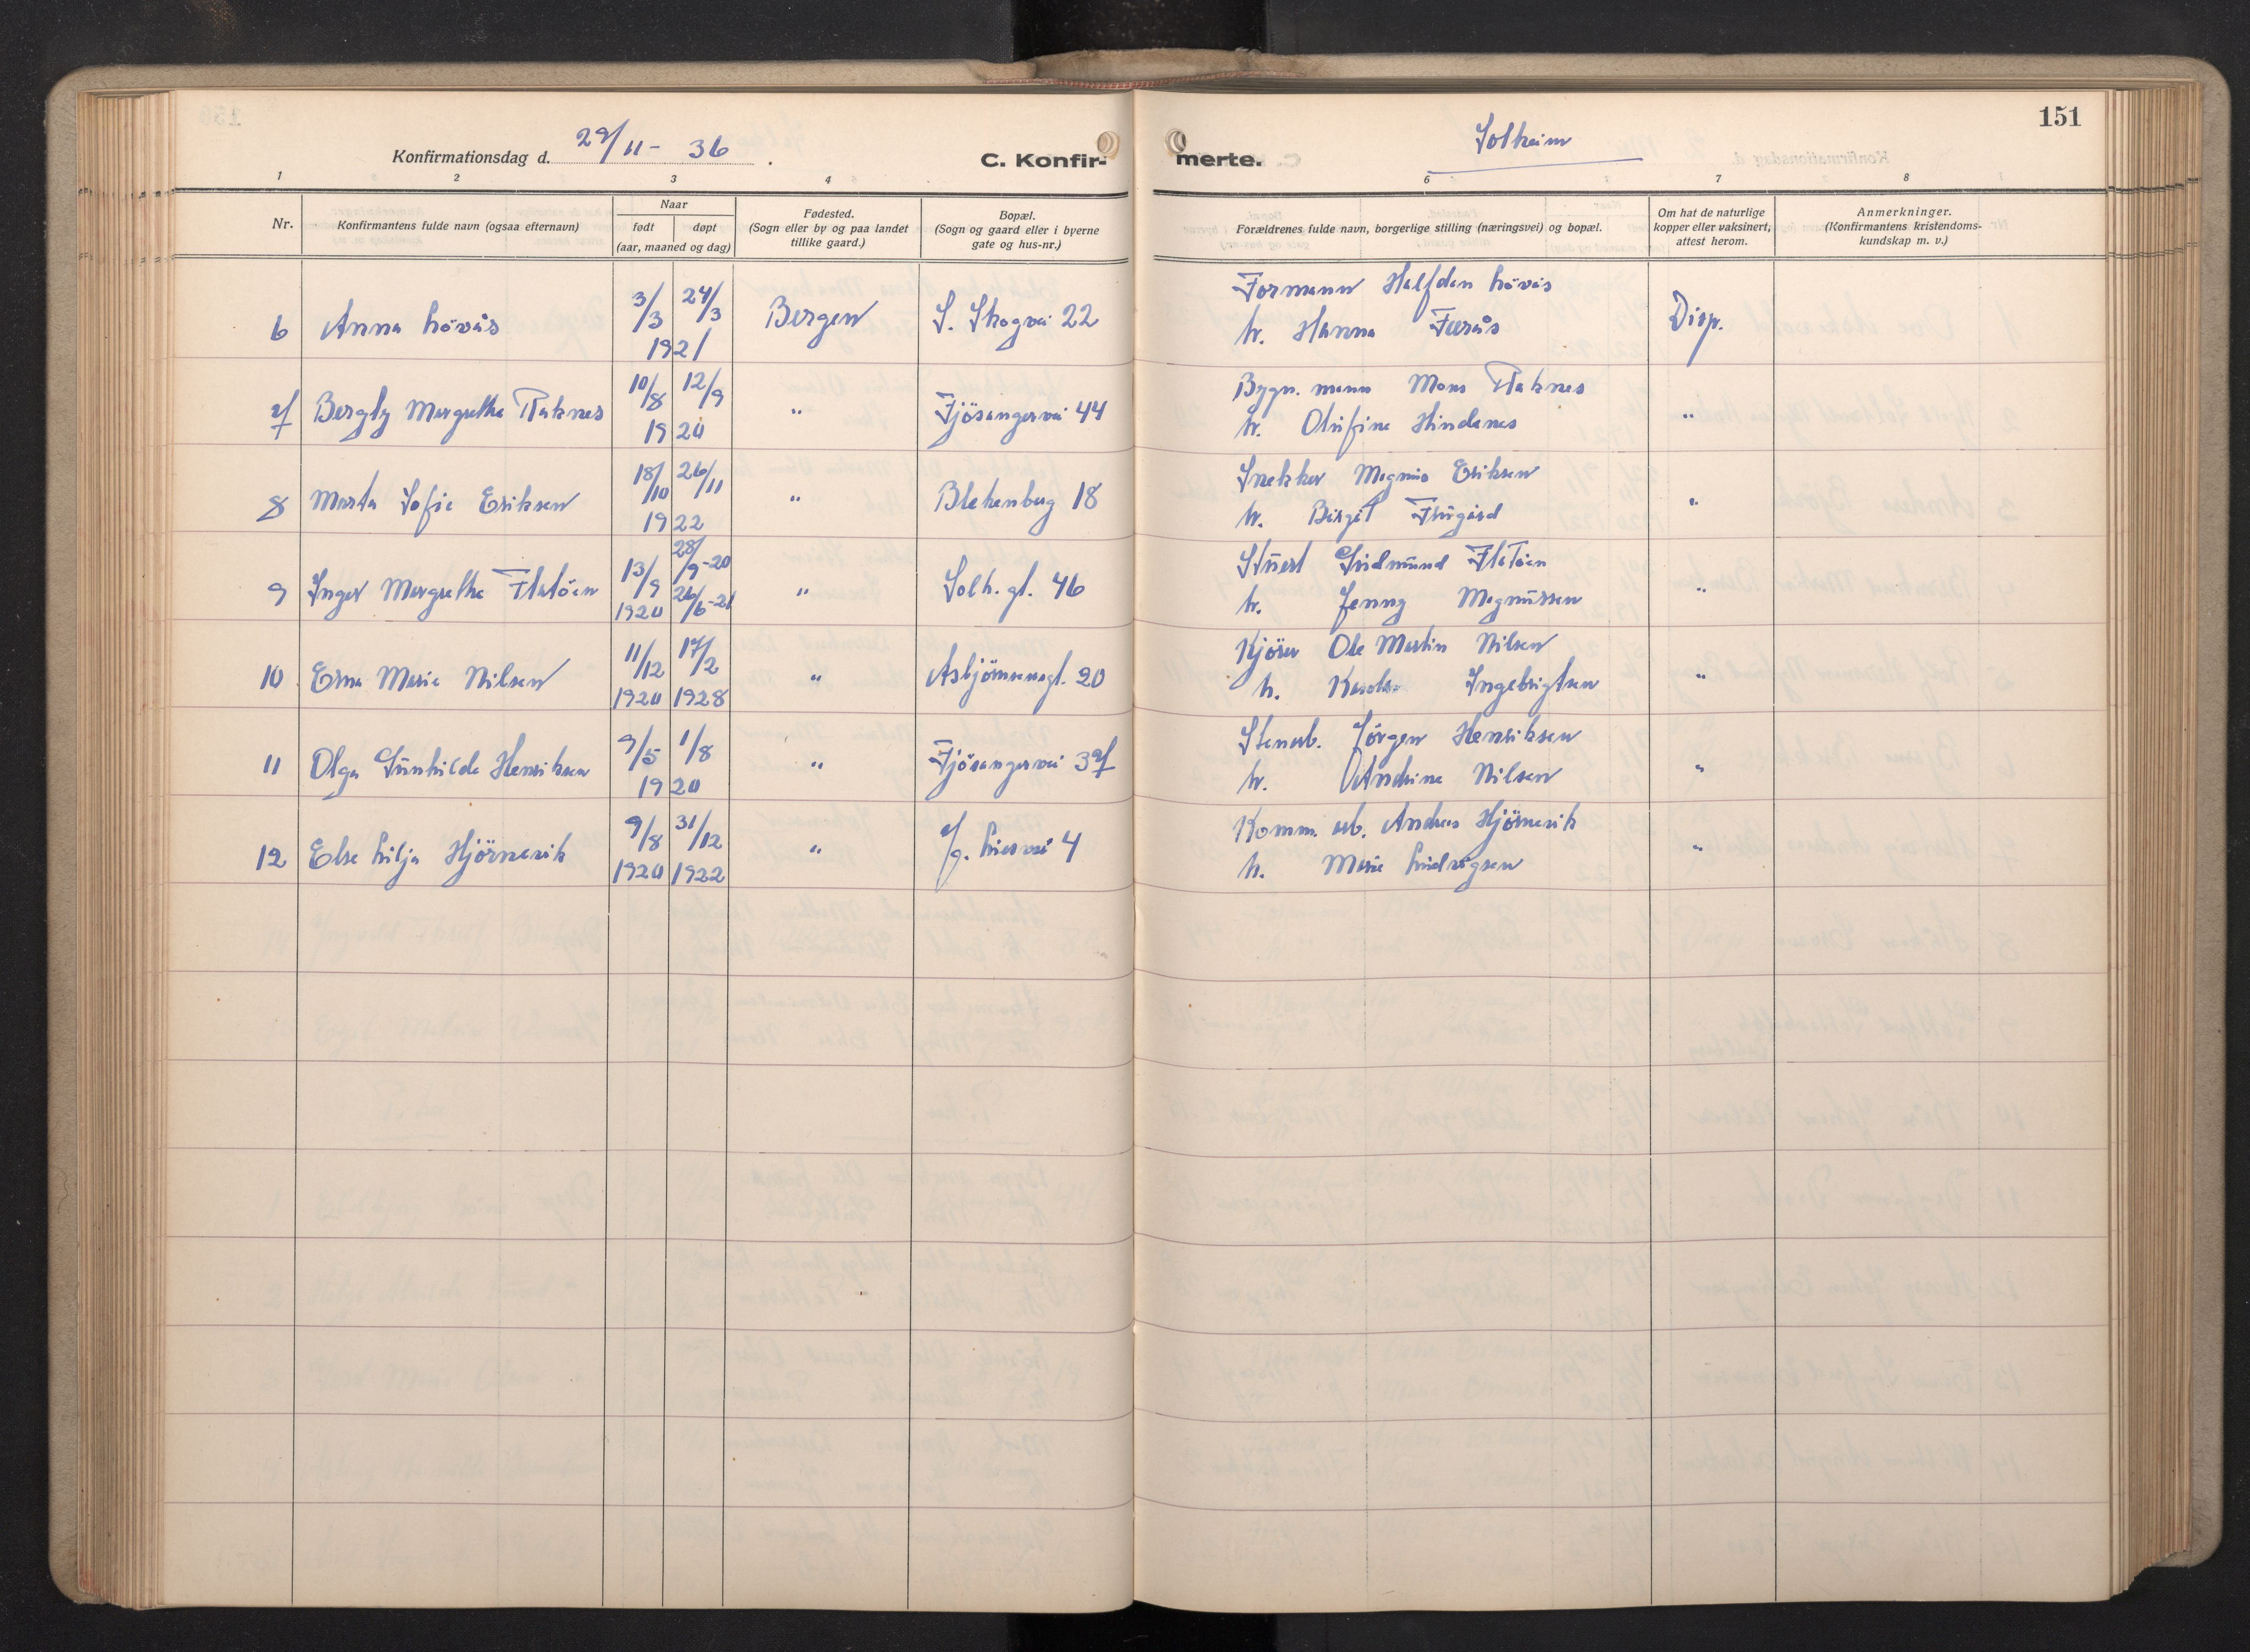 151
Konfirmationsdag d. 29/11 - 36.
C. Konfirmerte.
Solheim
1 2 3 4 6 7 8
Nr.
Konfirmantens fulde navn (ogsaa efternavn)
Naar
født døpt
(aar, maaned og dag)
Fødested.
(Sogn eller by og paa landet
tillike gaard.)
Bopæl.
(Sogn og gaard eller i byerne
gate og hus-nr.)
Forældrenes fulde navn, borgerlige stilling (næringsvei) og bopæl.
Om hat de naturlige
kopper eller vaksinert,
attest herom.
Anmerkninger.
(Konfirmantens kristendoms-
kundskap m. v.)
6 Anna Løvås 3/3 24/3 1921 Bergen S. Skogvei 22 Formann Halfdan Løvås
h. Hanna Furås Disp.
7 Bergly Margrethe Raknes 10/8 12/9 1920 " Fjøsangervei 44 Bygn. mann Mons Raknes
h. Olufine Hindenes "
8 Marta Sofie Eriksen 18/10 26/11 1922 " Blekenberg 18 Snekker Magnus Eriksen
h. Birgit "
9 Inger Margrethe Flatøen 13/9 1920 28/9-20 26/6-21 " Solh. gt. 46 Stuert Gudmund Flatøen
h. Jenny Magnussen "
10 Erna Marie Nilsen 11/12 1920 17/2 1928 " Asbjørnsensgt. 20 Kjører Ole Martin Nilsen
h. Ingebrigtsen "
11 Olga Gunhilda Henriksen 9/5 1/8 1920 " Fjøsangervei 37 Stenarb. Jørgen Henriksen
h. Andrine Nilsen "
12 Else Lilja Hjørnevik 9/8 1920 31/12 1922 " J. Liesvei 4 Komm. arb. Andreas Hjørnevik
h. Marie Ludvigsen "